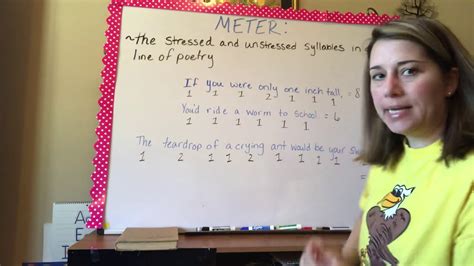 METER:
~the stressed and unstressed syllables in
line of poetry
If you were only one inch tall, = 8
1 1 1 2 1 1 1
You'd ride a worm to school = 6
1 1 1 1 1 1
The teardrop of a crying ant would be your
1 2 1 1 2 1 1 2 1
=
A
E
I